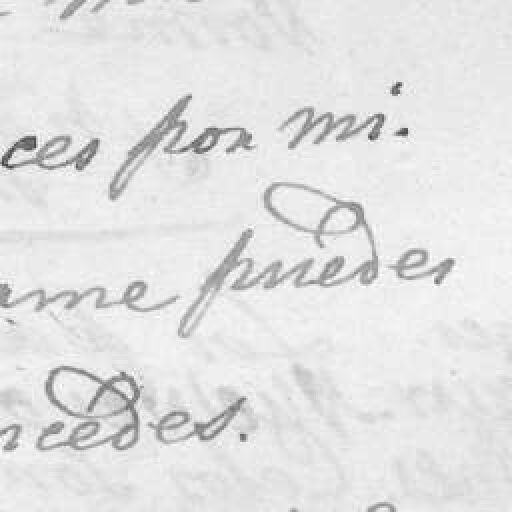 ces por mi.
ame puedes
ncedes.